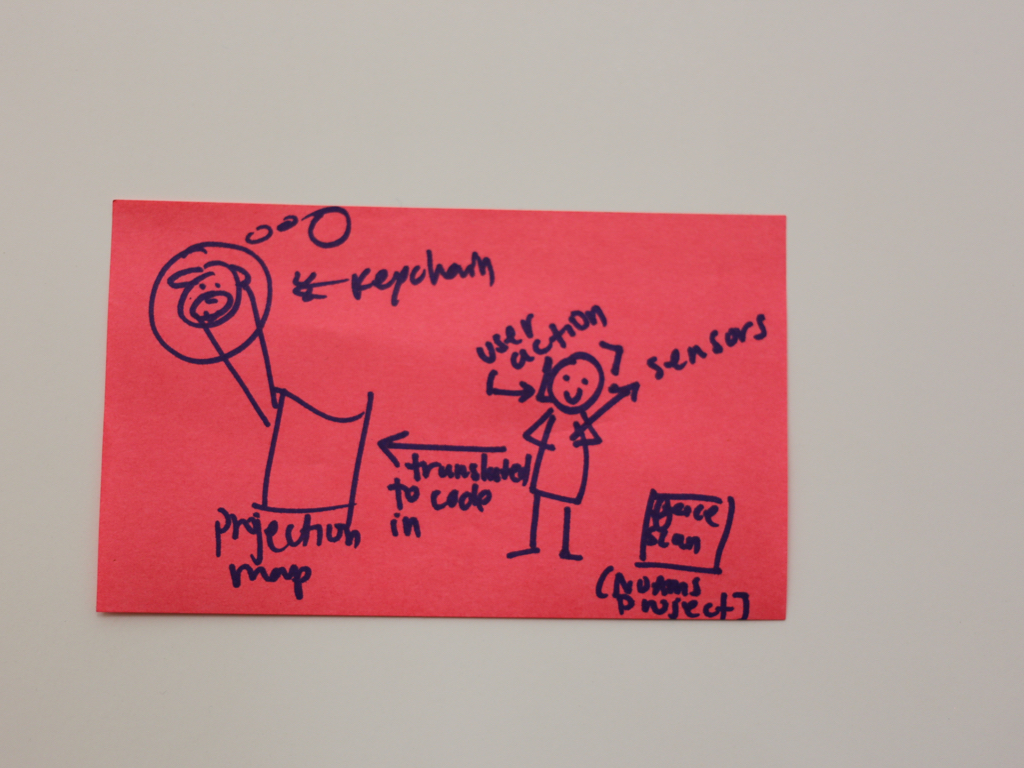 keychain
user
action
sensors
translated
to code
in
projection
map
scan
project]